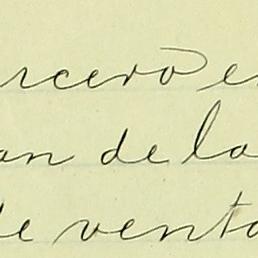 rcero e
an de la
de venta